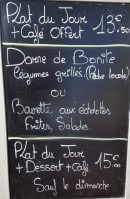 Plat du Jour
+ Café Offert 13€.50
Darne de Bonite
légumes grillés (Pêche locale)
ou
Bavette aux échalottes
Frites, Salade.
Plat du Jour
+ Dessert + Café 15€.00
Sauf le dimanche